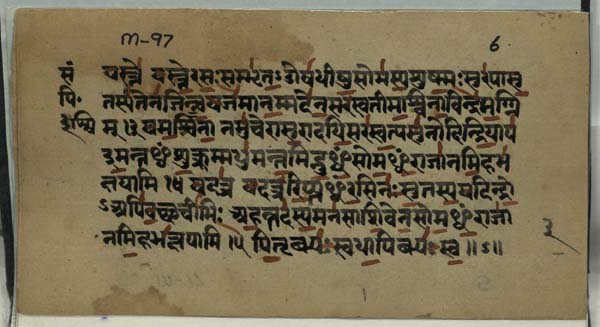 m-97 6
सं यस्ते यस्ते रसः सम्भृतः ओषधीषु सोमस्य शुष्मः सुरया सु
पि० तस्य तेन जिन्व यजमानम्मदेन सरस्वतीमश्विनाविन्द्रमग्नि
म् ।३ यमश्विना नमुचेरासुरादधि सरस्वत्यसुनोदिन्द्रियाय
इमन्तᳪ शुक्रम्मधुमन्तमिन्दुᳪ सोमᳪ राजानमिह भ
क्षयामि ।४ यदत्र यदत्र रिप्तᳪ रसिनः सुतस्य यदिन्द्रो
ऽअपिबच्छचीभिः अहन्तदस्य मनसा शिवेन सोमᳪ राजा
नमिह भक्षयामि ।५ पितृब्भ्यः स्वधायिब्भ्यः स्व ॥